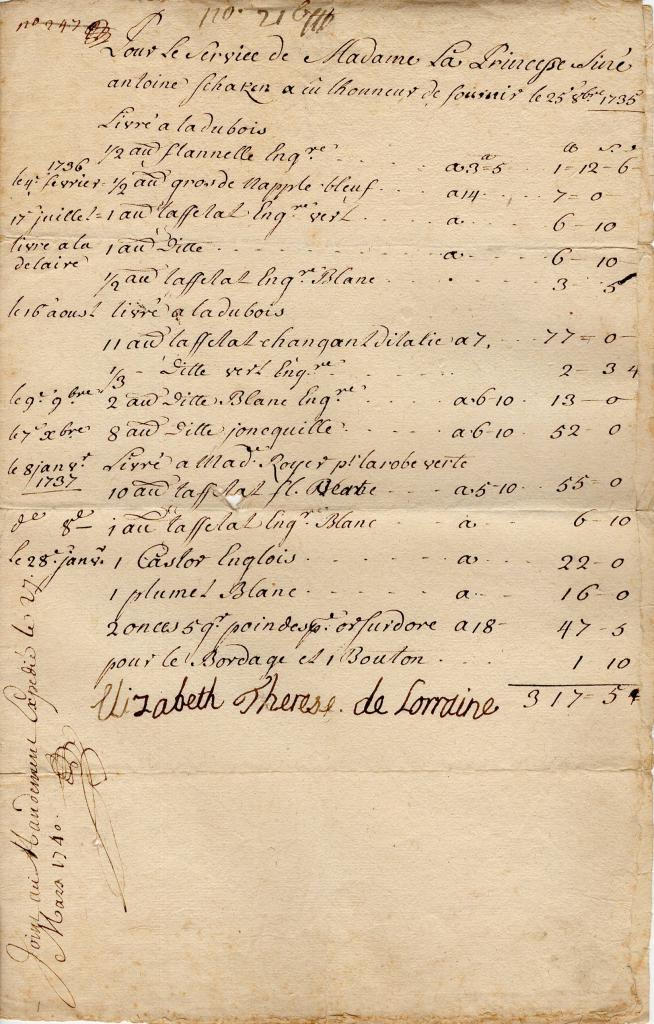 no 247
no. 216
Pour Le Service de Madame La Princesse Siné
antoine Schaken a eü lhonneur de fournir le 25e 8bre 1735
Livré a la dubois
1/2 aun flannelle Engre a 3 5 1-12-6
1736
le 4e fevrier 1/2 aun gros de Napple bleuf a 14 7-0
17e juillet 1 aun taffetat Engre vert a 6 10
livre a la delaire 1 aun Ditte a 6 10
1/2 aun taffetat Engre Blanc 3 5
le 16 aoust livré a la dubois
11 aun taffetat changant ditalie a 7, 77-0
1/3 Ditte vert Engre 2-3 4
le 9e 9bre 2 aun Ditte Blanc Engre a 6-10 13-0
le 7e xbre 8 aun Ditte joncquille a 6-10 52-0
le 8 janvr Livré a Made Royer pr la robe verte
1737
10 aun taffetat fl. a 5-10 55-0
de 8e 1 aun taffetat Engre Blanc a 6-10
Le 28e janvr 1 Castor Englois a 22-0
1 plumet Blanc a 16-0
2 onces 5 gr poindespe or surdore a 18 47-5
pour le Bordage et 1 Bouton 1 10
Elizabeth Therese de Lorraine 317-5 4
Joint au Mandement Expedié le 27.
Mars 1740.